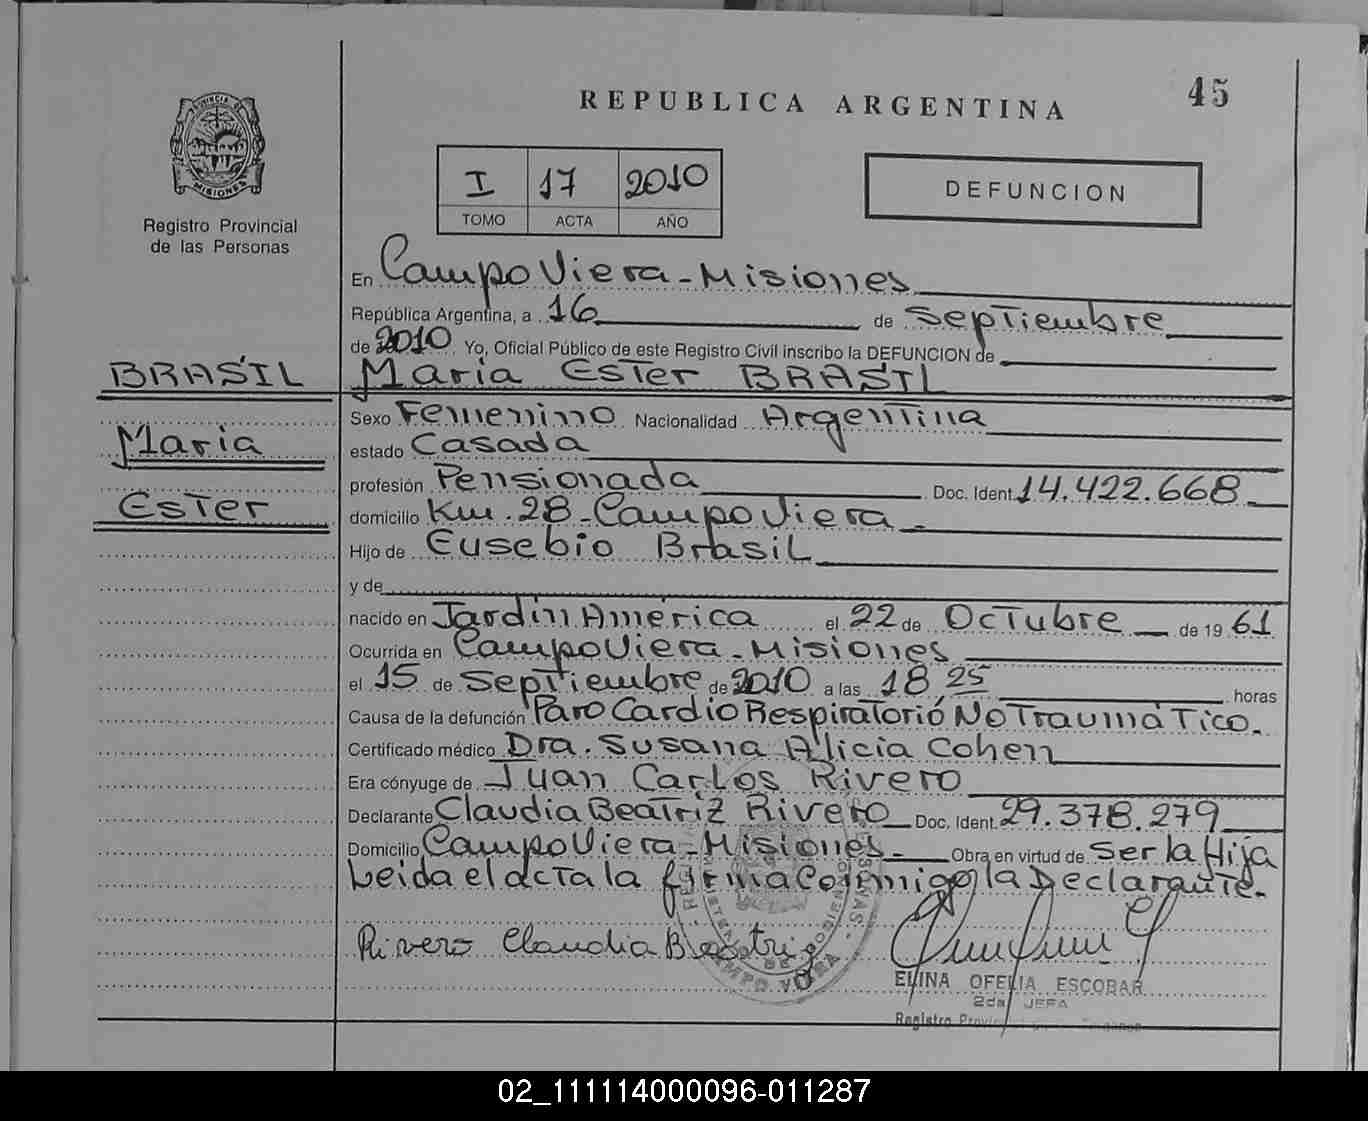 REPUBLICA ARGENTINA
45
PROVINCIA DE
MISIONES
Registro Provincial
de las Personas
I 17 2010
TOMO ACTA AÑO
DEFUNCION
En Campo Viera - Misiones
República Argentina, a 16 de Septiembre
de 2010 Yo, Oficial Público de este Registro Civil inscribo la DEFUNCION de
BRASIL
Maria Ester BRASIL
Sexo Femenino Nacionalidad Argentina
Maria
estado Casada
profesión Pensionada Doc. Ident. 14.422.668
Ester
domicilio Km. 28 - Campo Viera -
Hijo de Eusebio Brasil
y de
nacido en Jardín América el 22 de Octubre de 19 61
Ocurrida en Campo Viera - Misiones
el 15 de Septiembre de 2010 a las 18,25 horas
Causa de la defunción Paro Cardio Respiratorió No Traumático.
Certificado médico Dra. Susana Alicia Cohen
Era cónyuge de Juan Carlos Rivero
Declarante Claudia Beatriz Rivero Doc. Ident. 29.378.279
Domicilio Campo Viera - Misiones - Obra en virtud de Ser la Hija
Leida el acta la firma conmigo la Declarante.
Rivero Claudia Beatriz
ELINA OFELIA ESCOBAR
2da JEFA
Registro
02_111114000096-011287